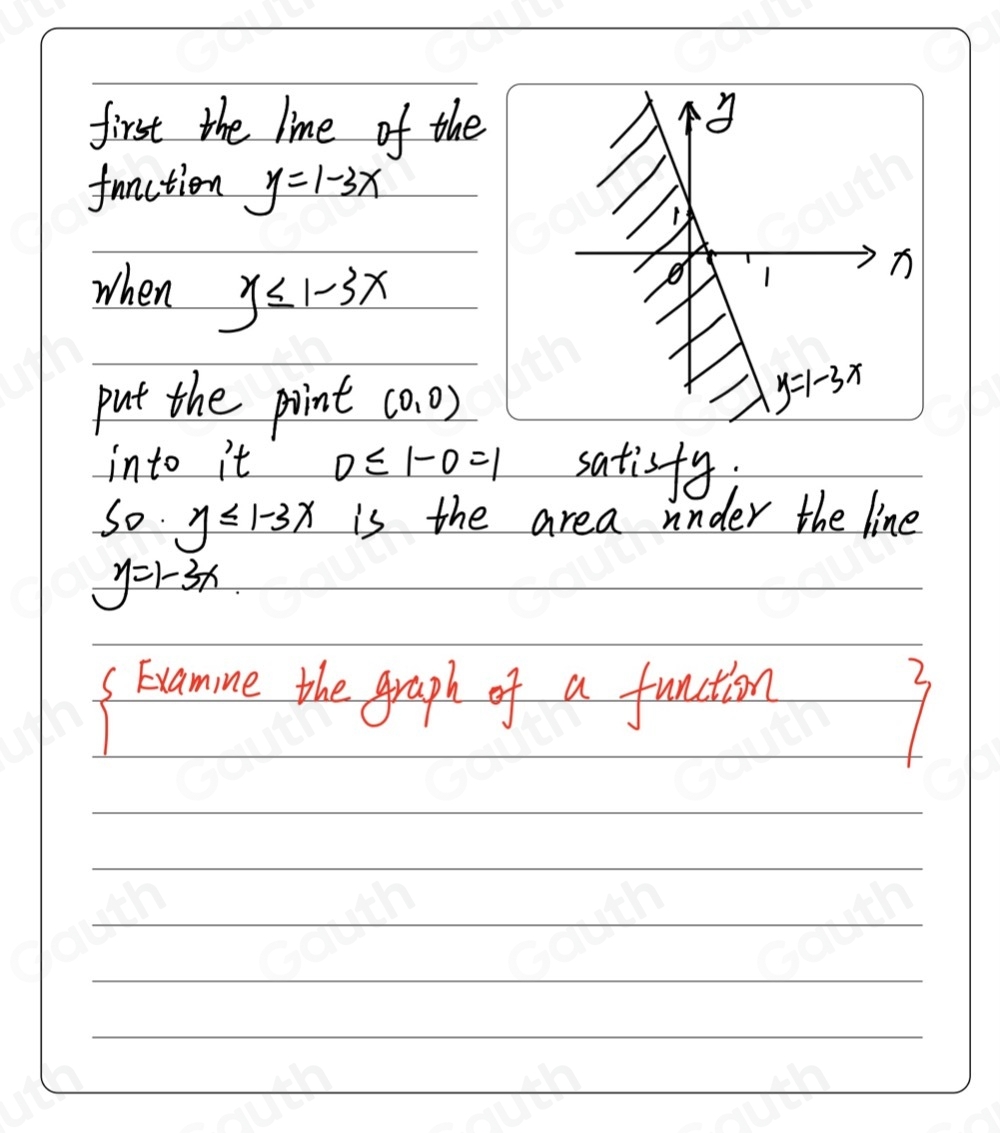 first the line of the
function y=1-3x
when y≤1-3x
put the point (0,0)
into it 0≤1-0=1 satisfy.
So. y≤1-3x is the area under the line
y=1-3x.
{ Examine the graph of a function }
y
1
0
1
x
y=1-3x
Gauth